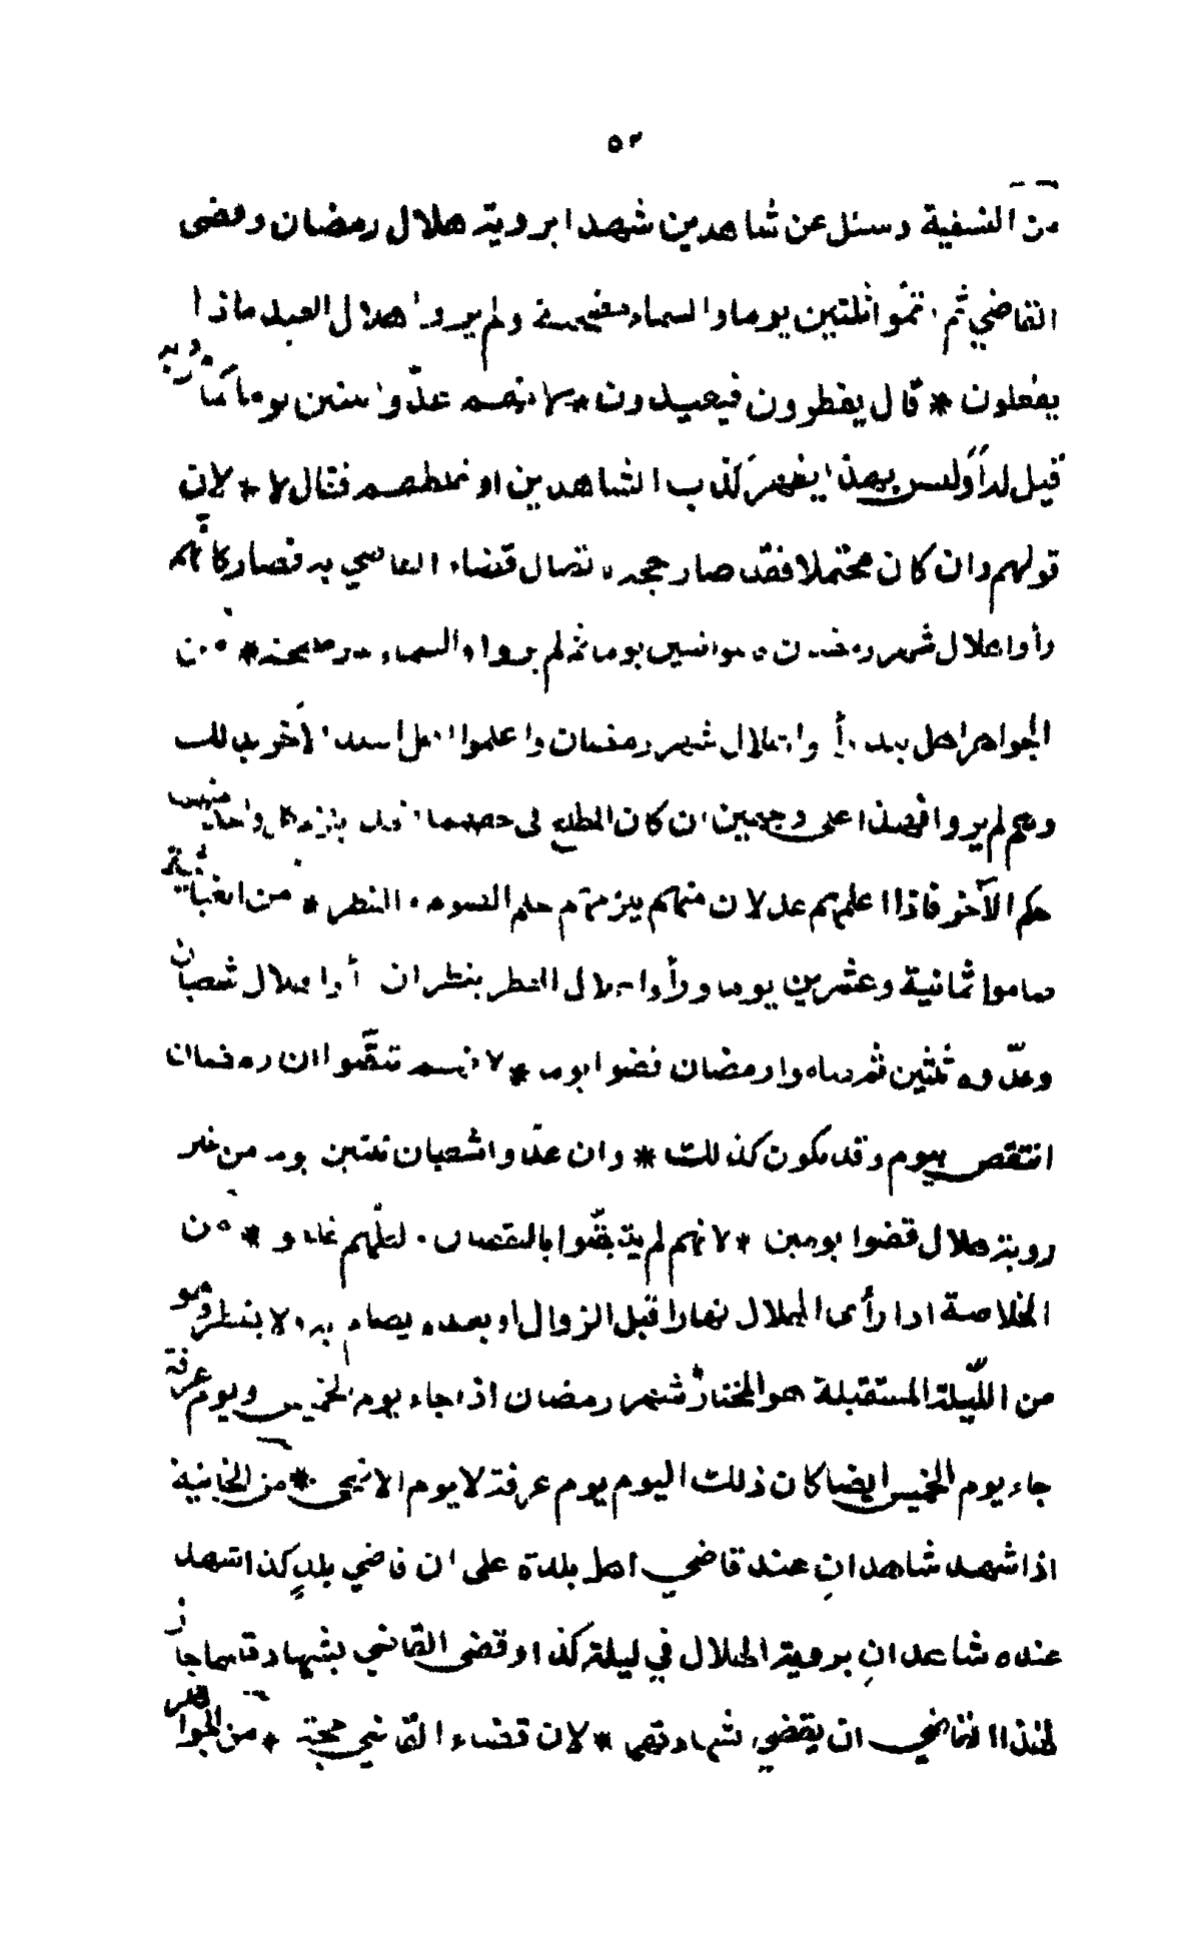 ٥٢
من النسفية وسئل عن شاهدين شهدا برؤية هلال رمضان وقضى
القاضي ثم اتموا ثلثين يوما والسماء مصحية ولم يروا هلال العيد ماذا
يفعلون * قال يفطرون فيعيدون * لانهم عدّوا ثلثين يوما
قيل له أوليس بهذا يظهر كذب الشاهدين او غلطهم فقال لا * لان
قولهم وان كان محتملا فقد صار حجة باتصال قضاء القاضي به فصار كانهم
رأوا هلال شهر رمضان يوما ثم لم يروا والسماء مصحية * من
الجواهر اهل بلد رأوا هلال شهر رمضان واعلموا اهل بلد لآخر بذلك
وهم لم يروا فهذا على وجهين ان كان المطلع كل واحد منهما
حكم الآخر فاذا اعلمهم عدلان منهم يلزمهم حكم الصوم والفطر * من الغياثية
صاموا ثمانية وعشرين يوما ورأوا هلال الفطر ينظر ان رأوا هلال شعبان
وعدّوه ثلثين ثم صاموا رمضان قضوا يوما * لانهم تيقّنوا ان رمضان
انتقص بيوم وقد يكون كذلك * وان عدّوا شعبان ثلثين يوما من غير
رؤية هلال قضوا يومين * لانهم لم يتيقّنوا بالنقصان لعلّهم * من
الخلاصة اذا رأى الهلال نهارا قبل الزوال او بعده يصام به ولا يفطر وهو
من اللّيلة المستقبلة هو المختار شهر رمضان اذا جاء يوم الخميس ويوم عرفة
جاء يوم الخميس ايضا كان ذلك اليوم يوم عرفة لا يوم الاضحى * من الخانية
اذا شهد شاهدانِ عند قاضي اهل بلدة على ان قاضي بلدٍ كذا شهد
عنده شاهدانِ برؤية الهلال في ليلة كذا وقضى القاضي بشهادتهما جاز
لهذا القاضي ان يقضي بشهادتهما * لان قضاء القاضي حجة * من الجواهر